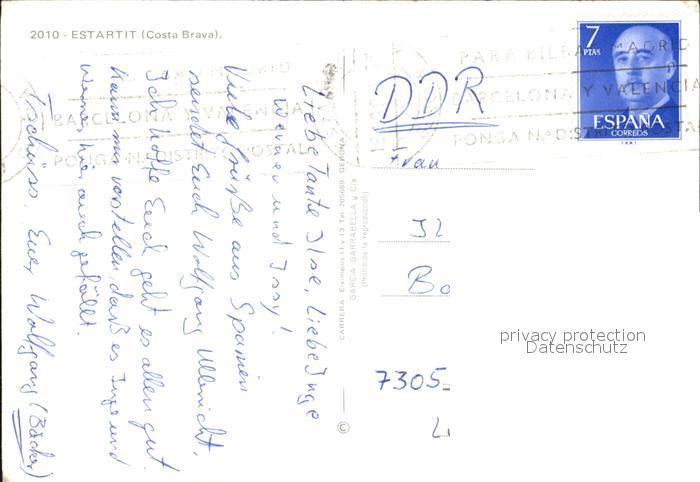 2010 - ESTARTIT (Costa Brava).
Liebe Tante Ilse, Liebe Inge
Werner und Issy!
Viele Grüße aus Spanien
sendet Euch Wolfgang Ullbricht.
Ich hoffe Euch geht es allen gut.
kann mir vorstellen, daß es Inge und
Werner hier auch gefällt.
Tschüss. Euer Wolfgang (Bäcker)
CARRERA - Eximenis 11 y 13. Tel. 205669 - GERONA
GARCIA GARRABELLA y Cía.
(Prohibida la reproducción)
©
PARA BILBAO MADRID
BARCELONA Y VALENCIA
PONGA N.º DISTRITO POSTAL
7
PTAS
ESPAÑA
CORREOS
DDR
Frau
Il
Bo
privacy protection
Datenschutz
7305
L